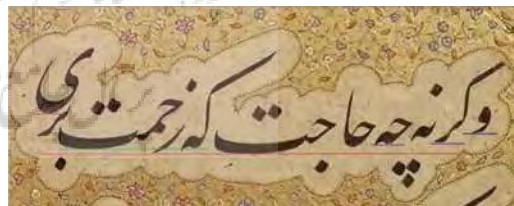 وگرنه چه حاجت که زحمت بری